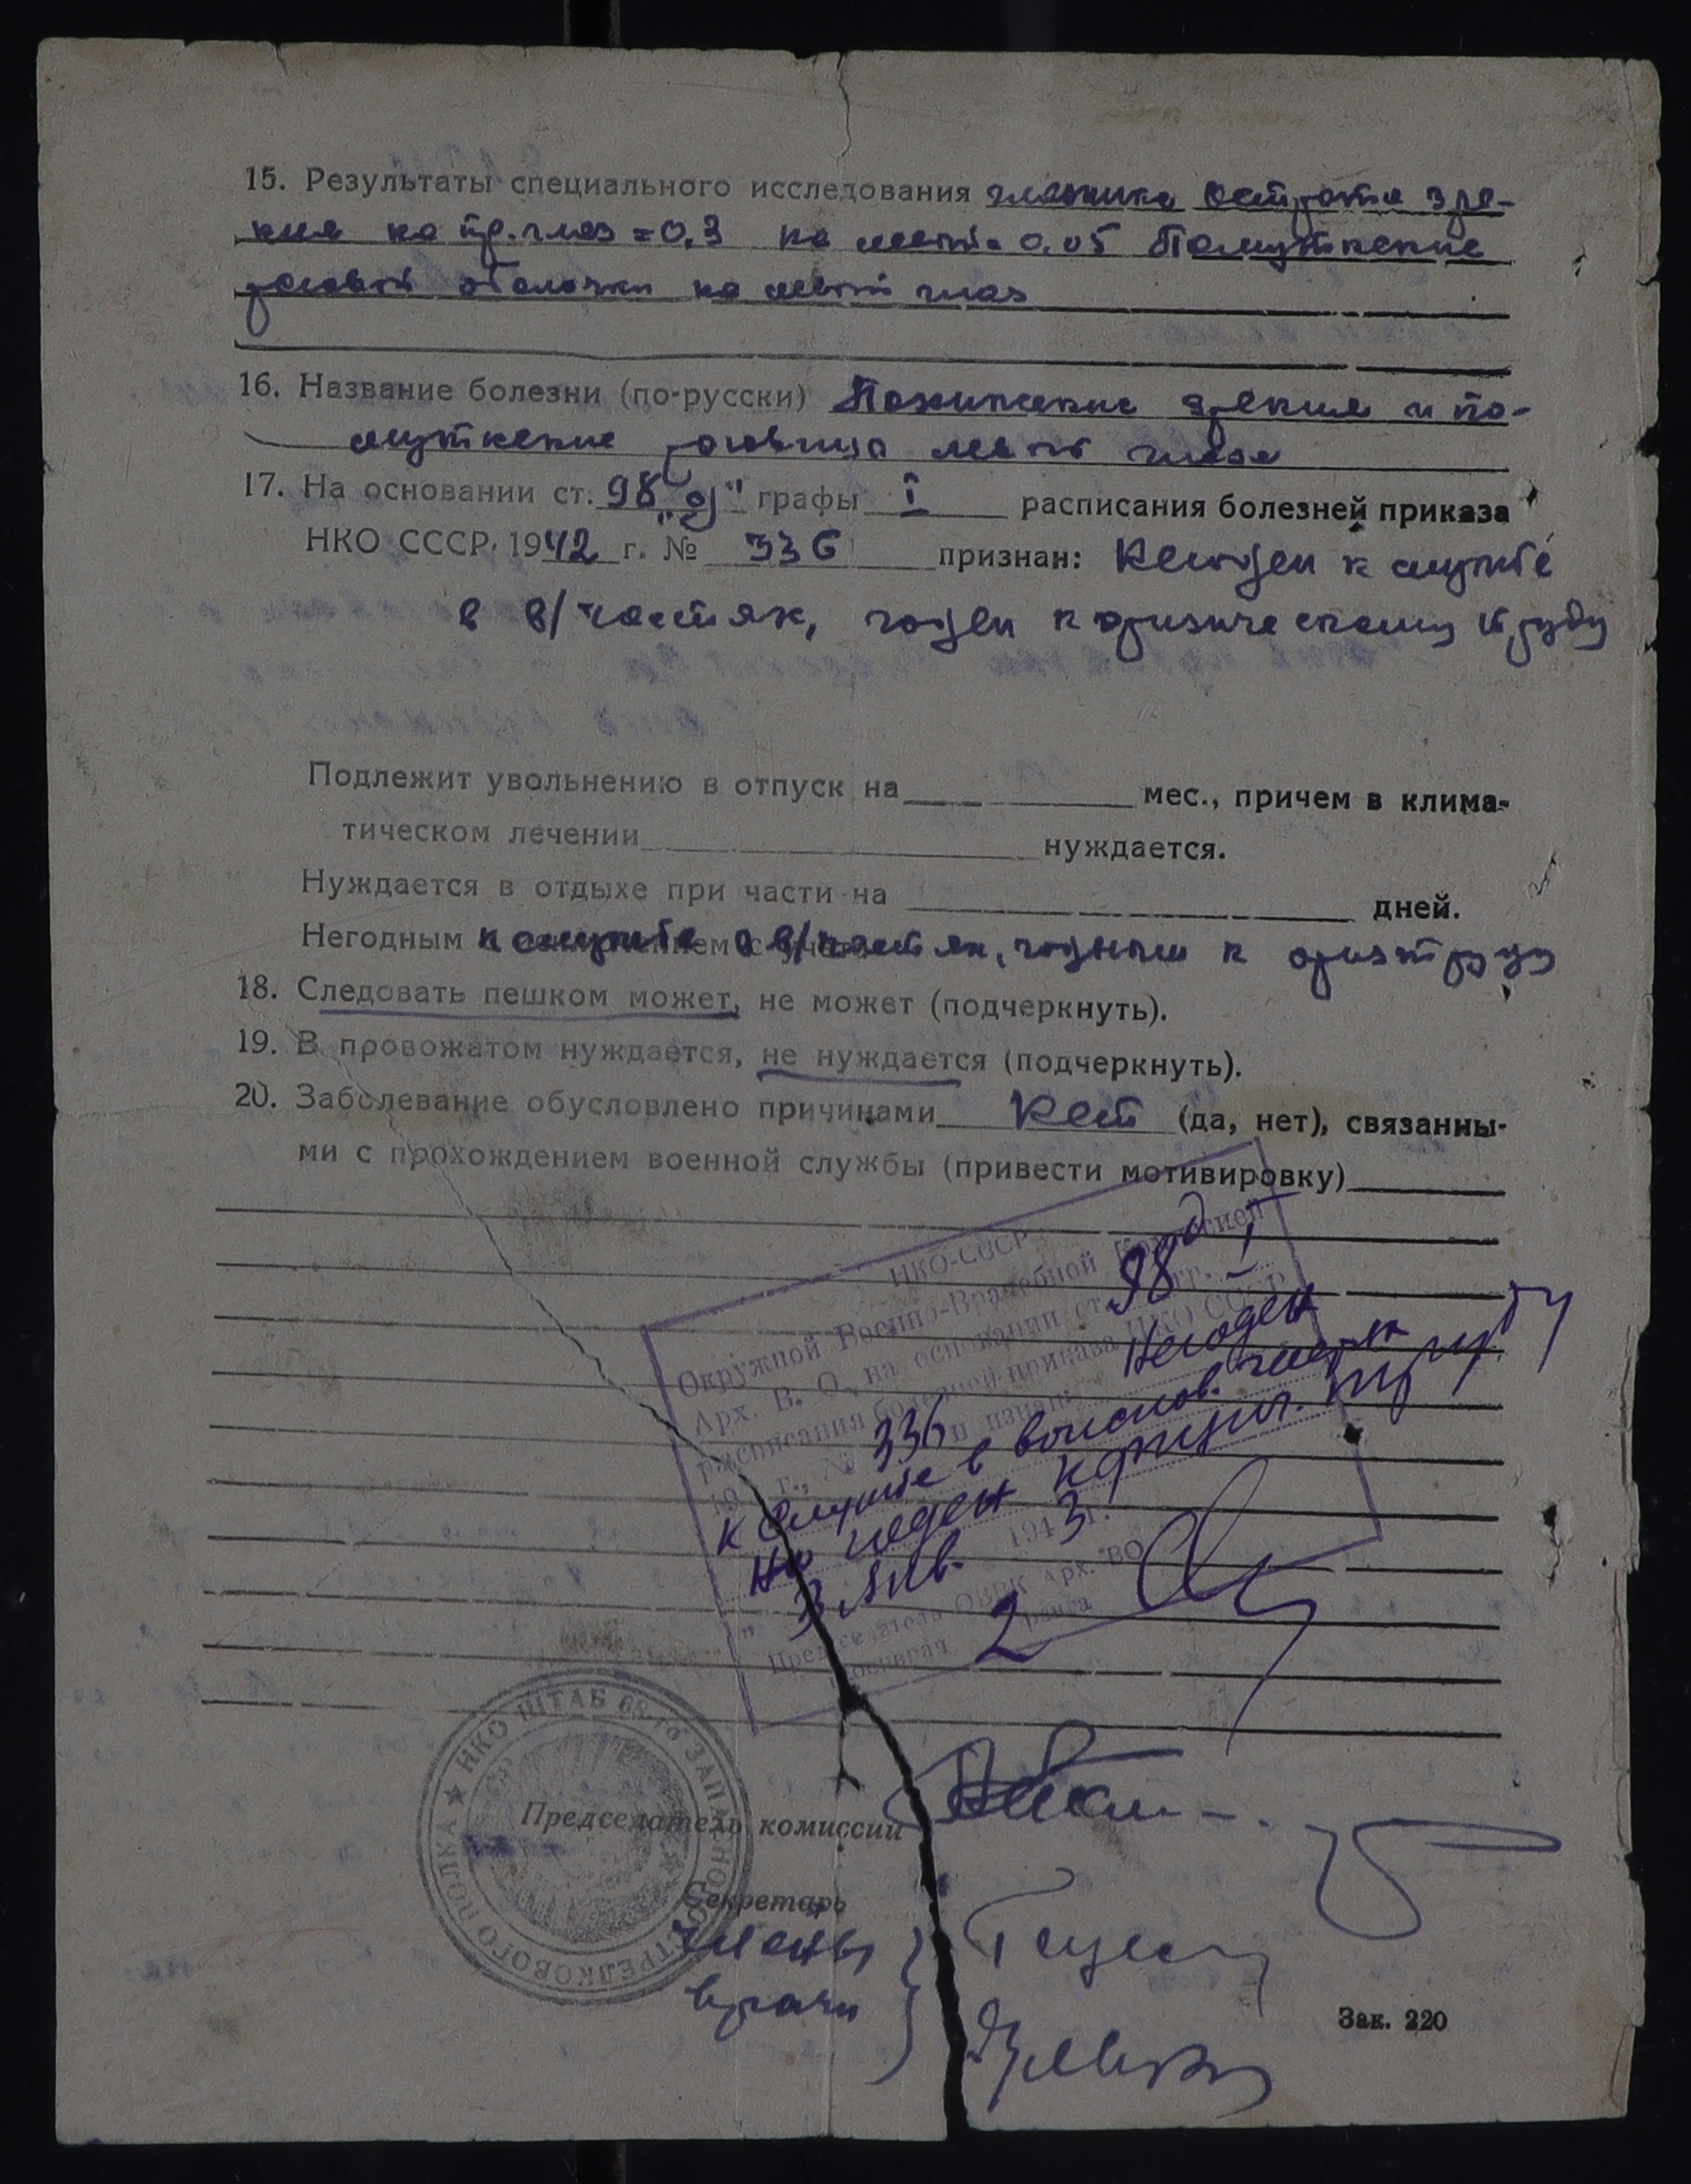 15. Результаты специального исследования глазника острота зре-
ния на пр. глаз = 0,3 на левый = 0.05 Помутнение
роговой оболочки на левый глаз
16. Название болезни (по-русски) Понижение зрения и по-
мутнение роговицы левого глаза
17. На основании ст. 98 "д" графы I расписания болезней приказа
НКО СССР, 1942 г. № 336 признан: Негоден к службе
в в/частях, годен к физическому труду
Подлежит увольнению в отпуск на мес., причем в клима-
тическом лечении нуждается.
Нуждается в отдыхе при части на дней.
Негодным к службе в в/частях, годным к физ труду
18. Следовать пешком может, не может (подчеркнуть).
19. В провожатом нуждается, не нуждается (подчеркнуть).
20. Заболевание обусловлено причинами Нет (да, нет), связанны-
ми с прохождением военной службы (привести мотивировку)
НКО-СССР
Окружной Военно-Врачебной Комиссией
Арх. В. О. на основании ст. 98 д гр. I
расписания болезней приказа НКО СССР
19 г., № 336 признан: Негоден
к службе в войсков. частях
но годен к физич. труду
"3" янв. 1943 г.
Председатель ОВВК Арх. ВО
Военврач 2 ранга
НКО ШТАБ 68-го ЗАПАСНОГО СТРЕЛКОВОГО ПОЛКА
Председатель комиссии
Секретарь
Члены
врачи
Зак. 220